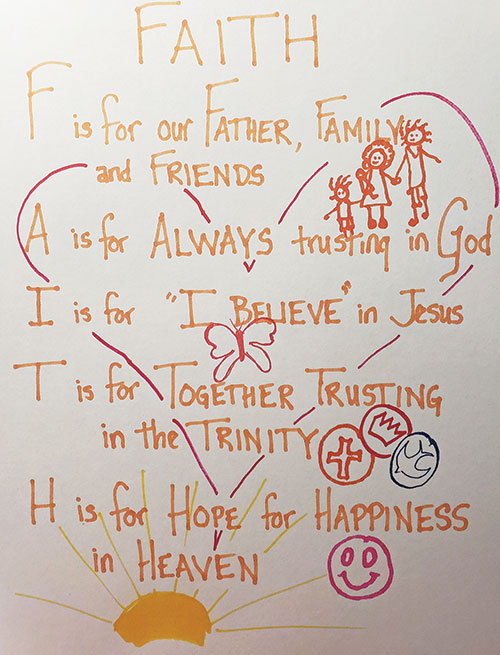 FAITH
F is for our FATHER, FAMILY
and FRIENDS
A is for ALWAYS trusting in God
I is for "I BELIEVE" in Jesus
T is for TOGETHER TRUSTING
in the TRINITY
H is for HOPE for HAPPINESS
in HEAVEN